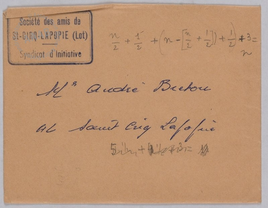 Société des amis de
St-CIRQ-LAPOPIE (Lot)
Syndicat d'Initiative
n/2 + 1/2 + (n - [n/2 + 1/2]) + 1/2 + 3 =
n
Mr André Breton
at Saint Cirq Lapopie